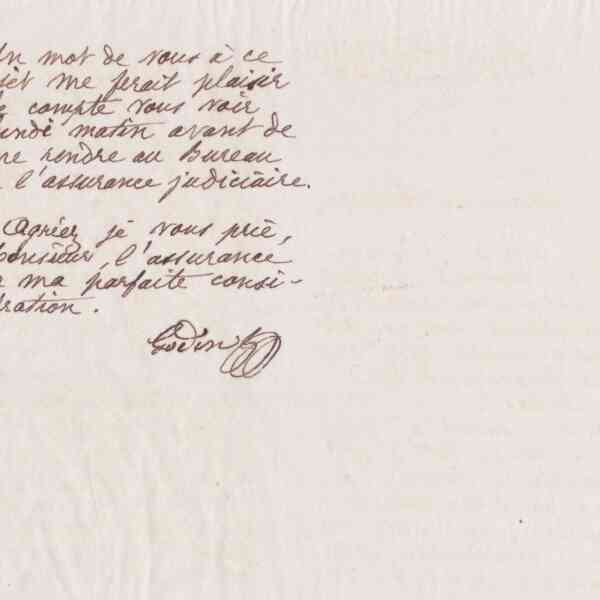 Un mot de vous à ce
sujet me ferait plaisir
compte vous voir
lundi matin avant de
me rendre au Bureau
l'assurance judiciaire.
Agréez, je vous prie,
Monsieur, l'assurance
ma parfaite consi-
dération.
Godin